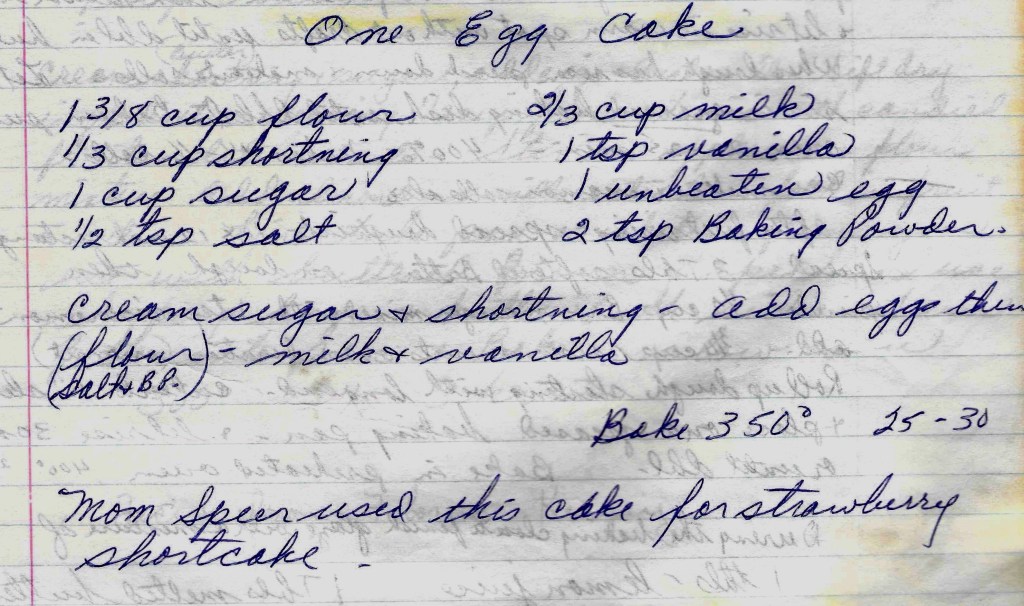 One Egg Cake
1 3/8 cup flour 2/3 cup milk
1/3 cup shortning 1 tsp vanilla
1 cup sugar 1 unbeaten egg
1/2 tsp salt 2 tsp Baking Powder.
Cream sugar & shortning - add eggs then
(flour) - milk & vanilla
(salt & B.P.)
Bake 350° 25-30
Mom Speer used this cake for strawberry
shortcake.